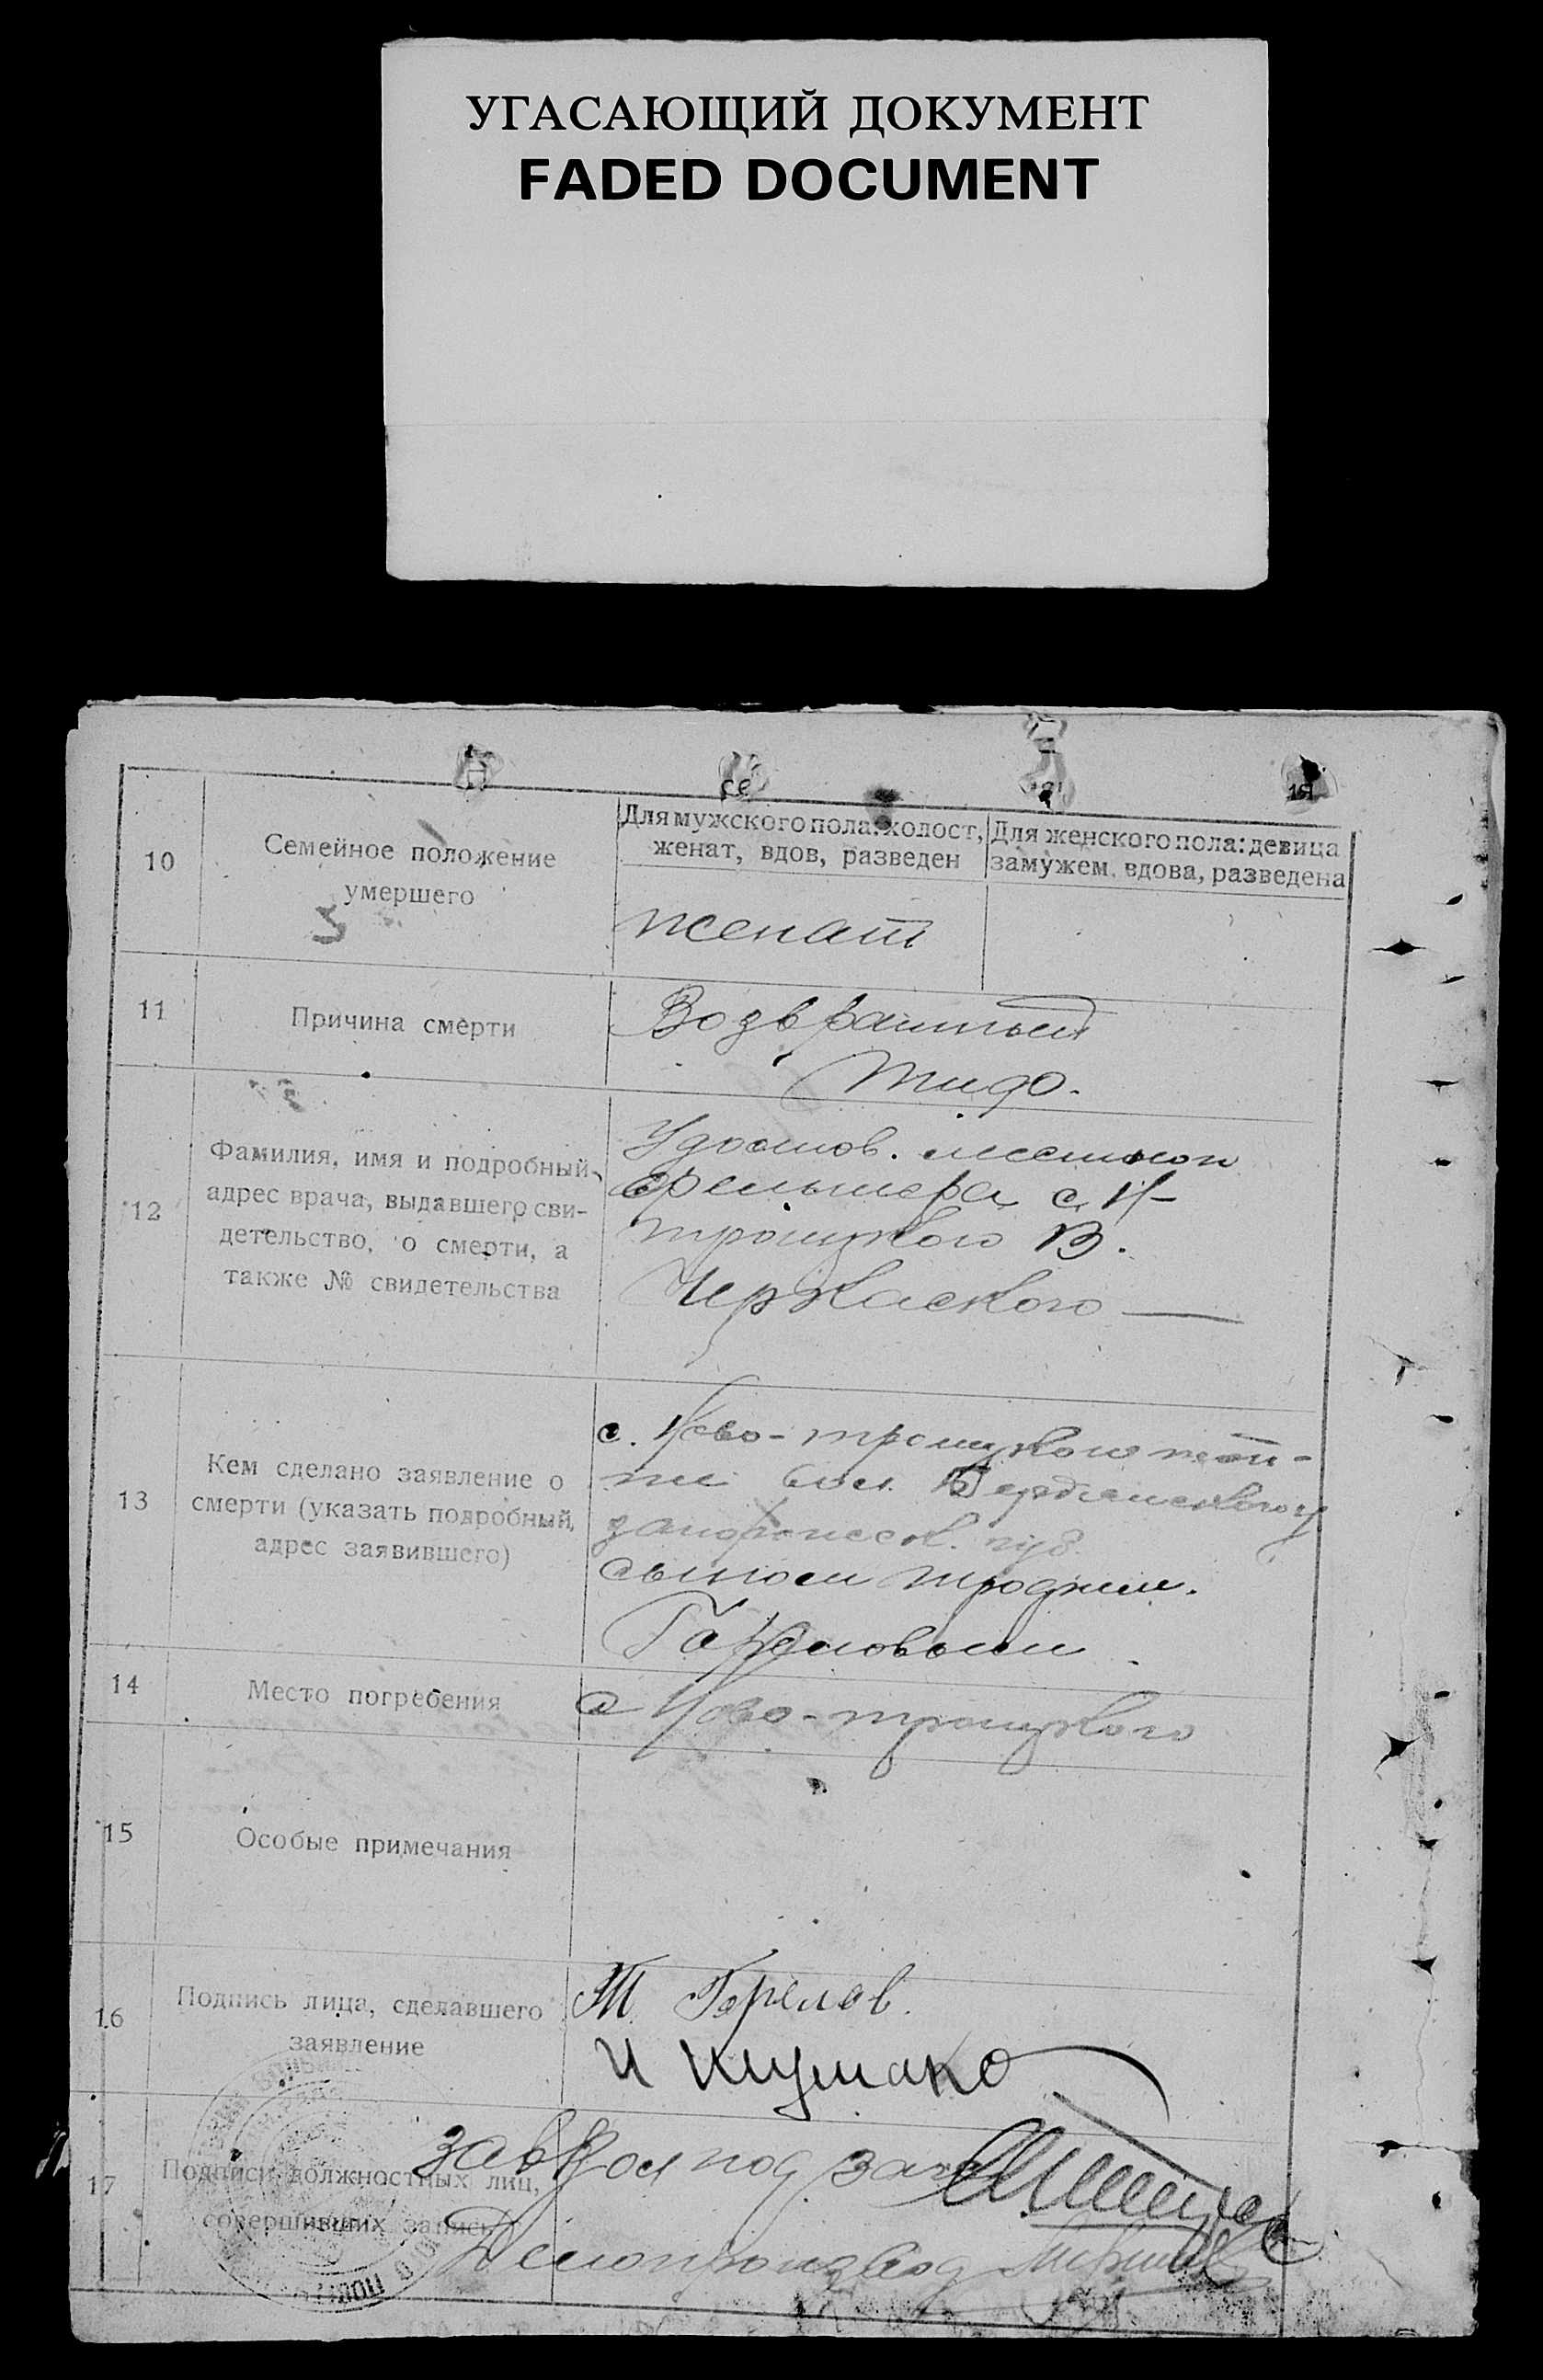 УГАСАЮЩИЙ ДОКУМЕНТ
FADED DOCUMENT
10
Семейное положение
умершего
Для мужского пола: холост,
женат, вдов, разведен
Для женского пола: девица
замужем, вдова, разведена
женат
11
Причина смерти
Возвратный
тиф.
12
Фамилия, имя и подробный
адрес врача, выдавшего сви-
детельство, о смерти, а
также № свидетельства
Удостов. местного
фельшера с. Н-
троицкого В.
Черкаского
13
Кем сделано заявление о
смерти (указать подробный
адрес заявившего)
с. Ново-троицкого той-
же вол. Бердянского у
запорожск. губ.
сыном Трофим.
Гореловым
14
Место погребения
с Ново-троицкого
15
Особые примечания
16
Подпись лица, сделавшего
заявление
Т. Горелов.
И
17
Подписи должностных лиц,
совершивших запись
Завед под
Делопроизвод